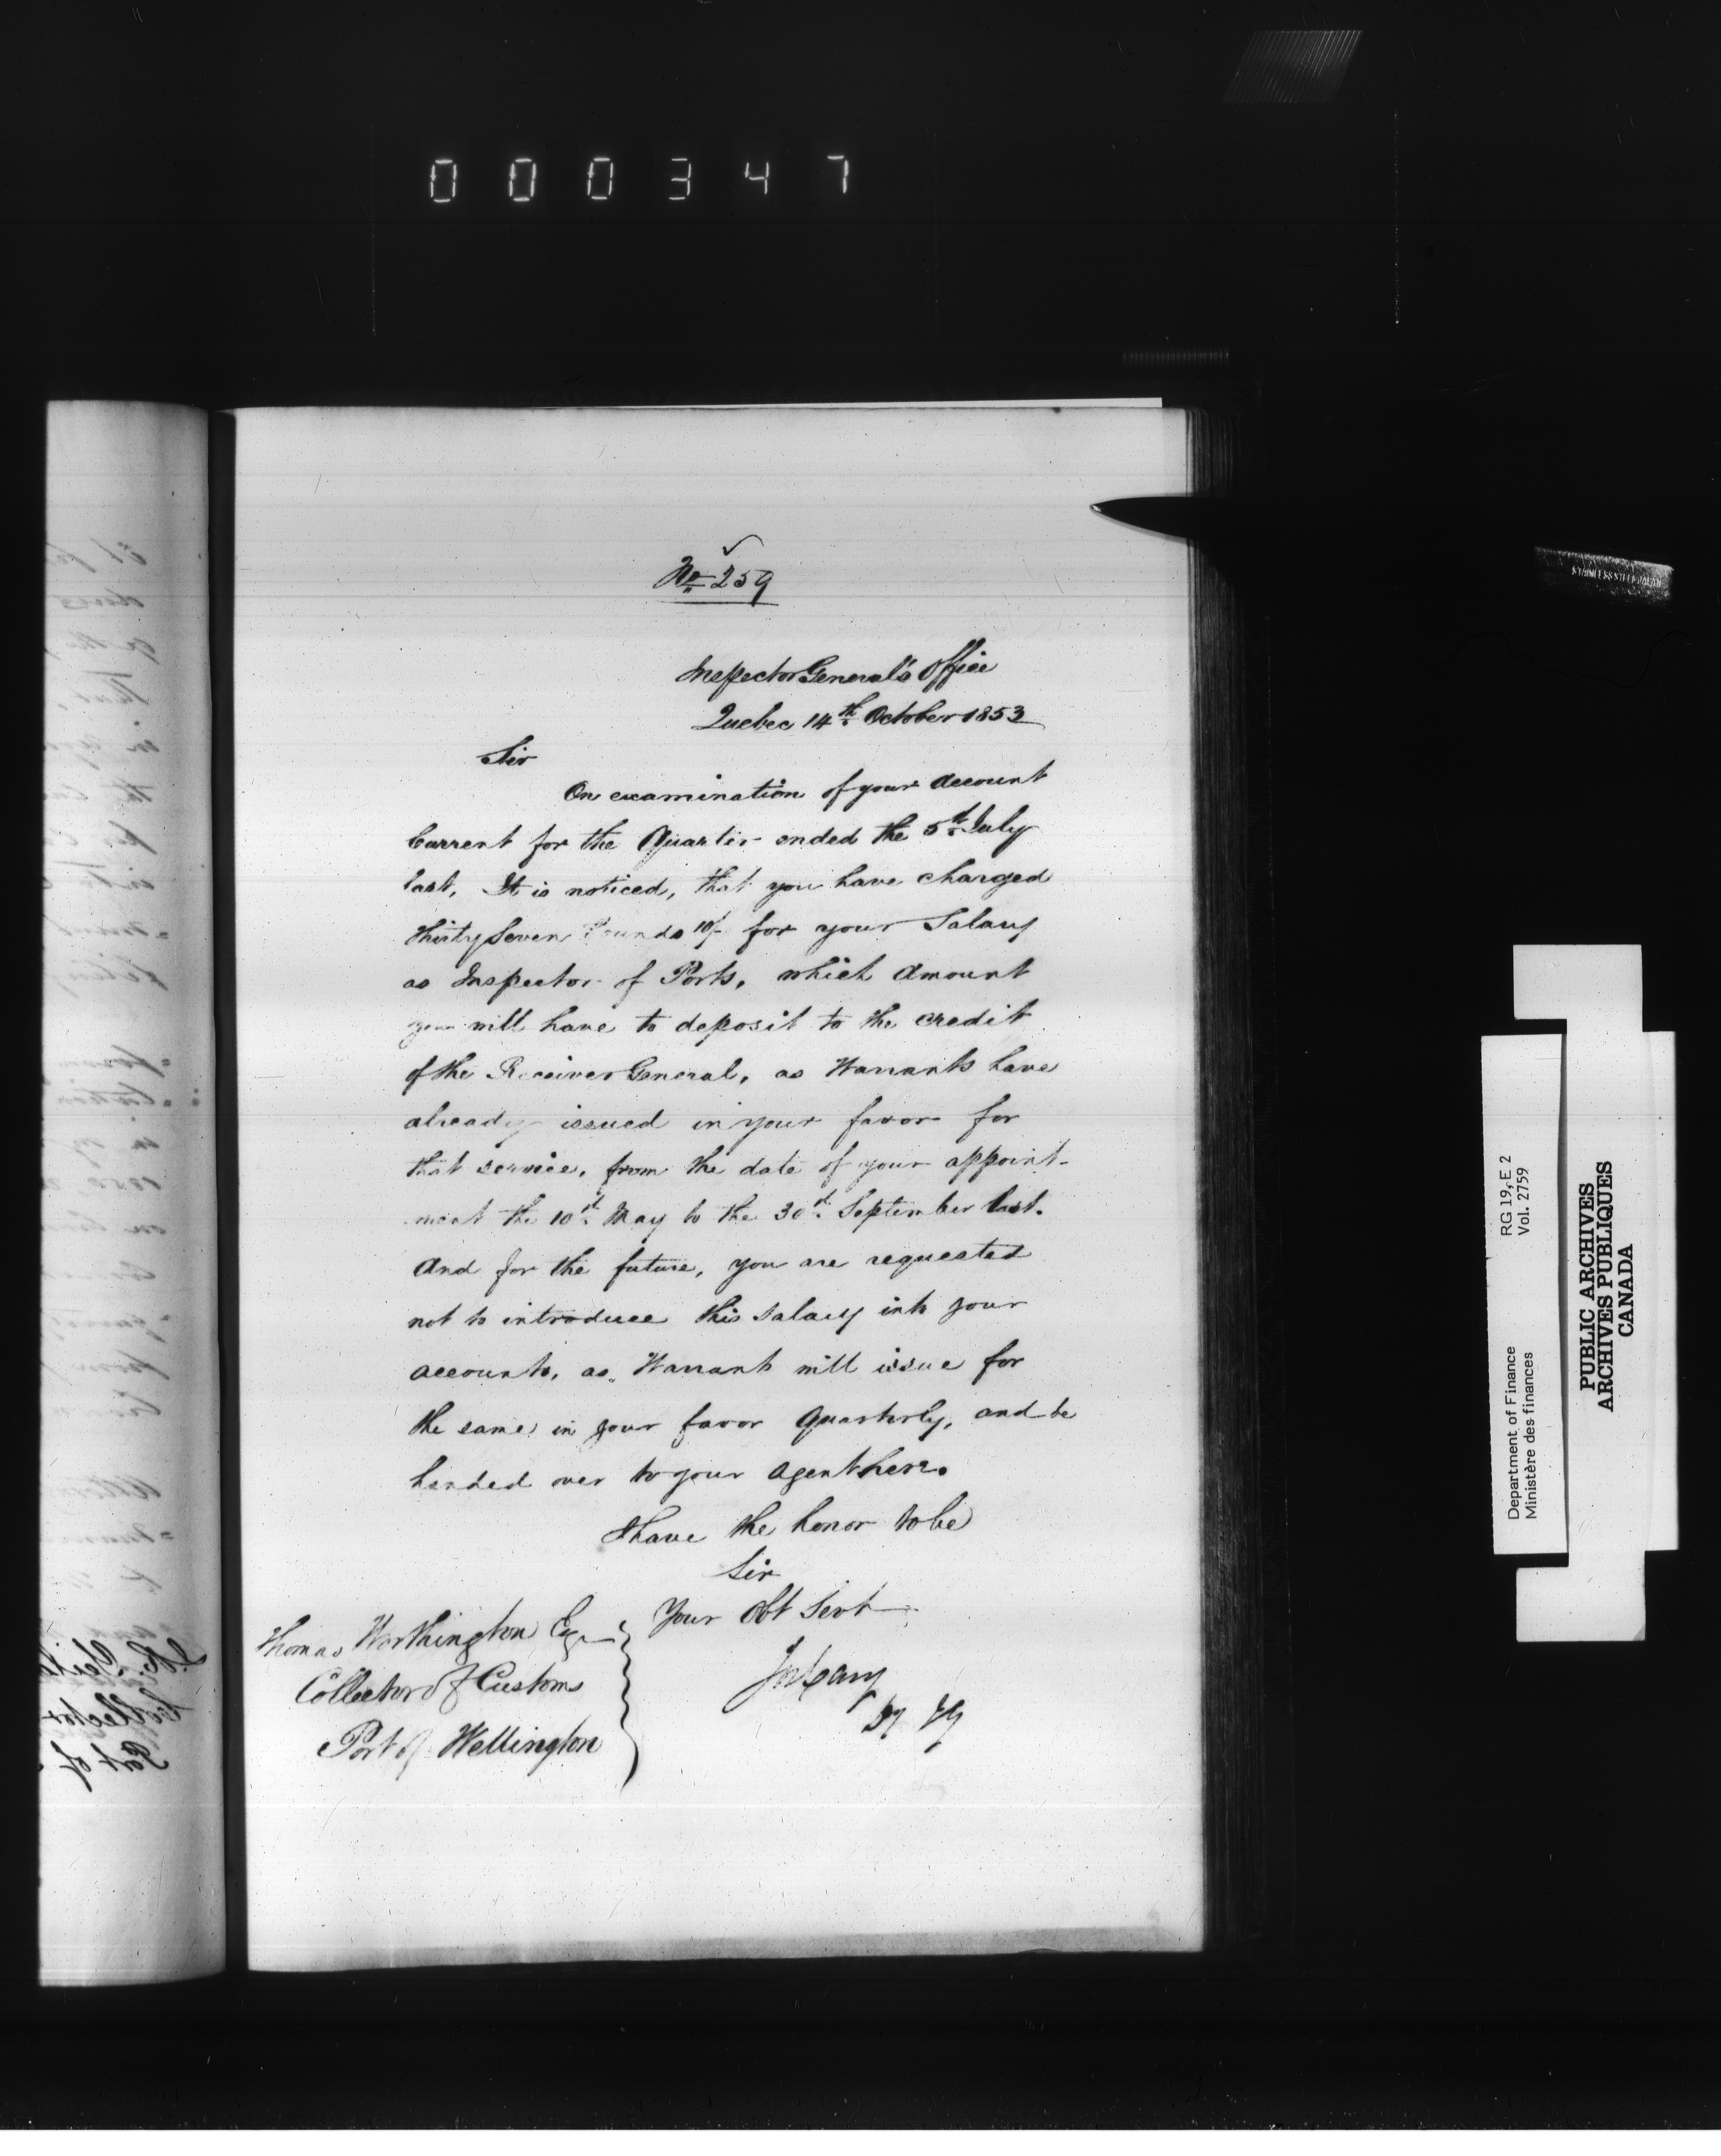 000347
No 259
Inspector General's Office
Quebec 14th October 1853
Sir
On examination of your Account
Current for the Quarter ended the 5th July
last, It is noticed, that you have charged
thirty Seven Pounds 10/- for your Salary
as Inspector of Ports, which Amount
you will have to deposit to the credit
of the Receiver General, as Warrants have
already issued in your favor for
that service, from the date of your appoint-
ment the 10th May to the 30th September last.
And for the future, you are requested
not to introduce this Salary into your
accounts, as Warrants will issue for
the same in your favor Quarterly, and be
handed over to your Agent here.
I have the honor to be
Sir
Your Obt Servt
Jos Cary
DIG
Thomas Worthington Esqr
Collector of Customs
Port of Wellington
STAINLESS STEEL
Department of Finance RG 19, E 2
Ministère des finances Vol. 2759
PUBLIC ARCHIVES
ARCHIVES PUBLIQUES
CANADA
Collector
Port of